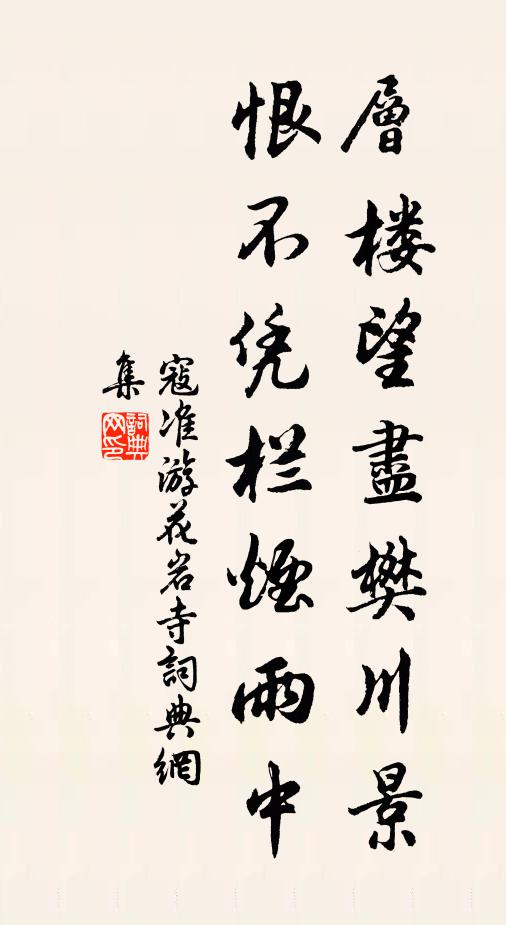 層楼望盡樊川景
恨不凭栏煙雨中
寇准游花岩寺詞典網
集
詞典网印